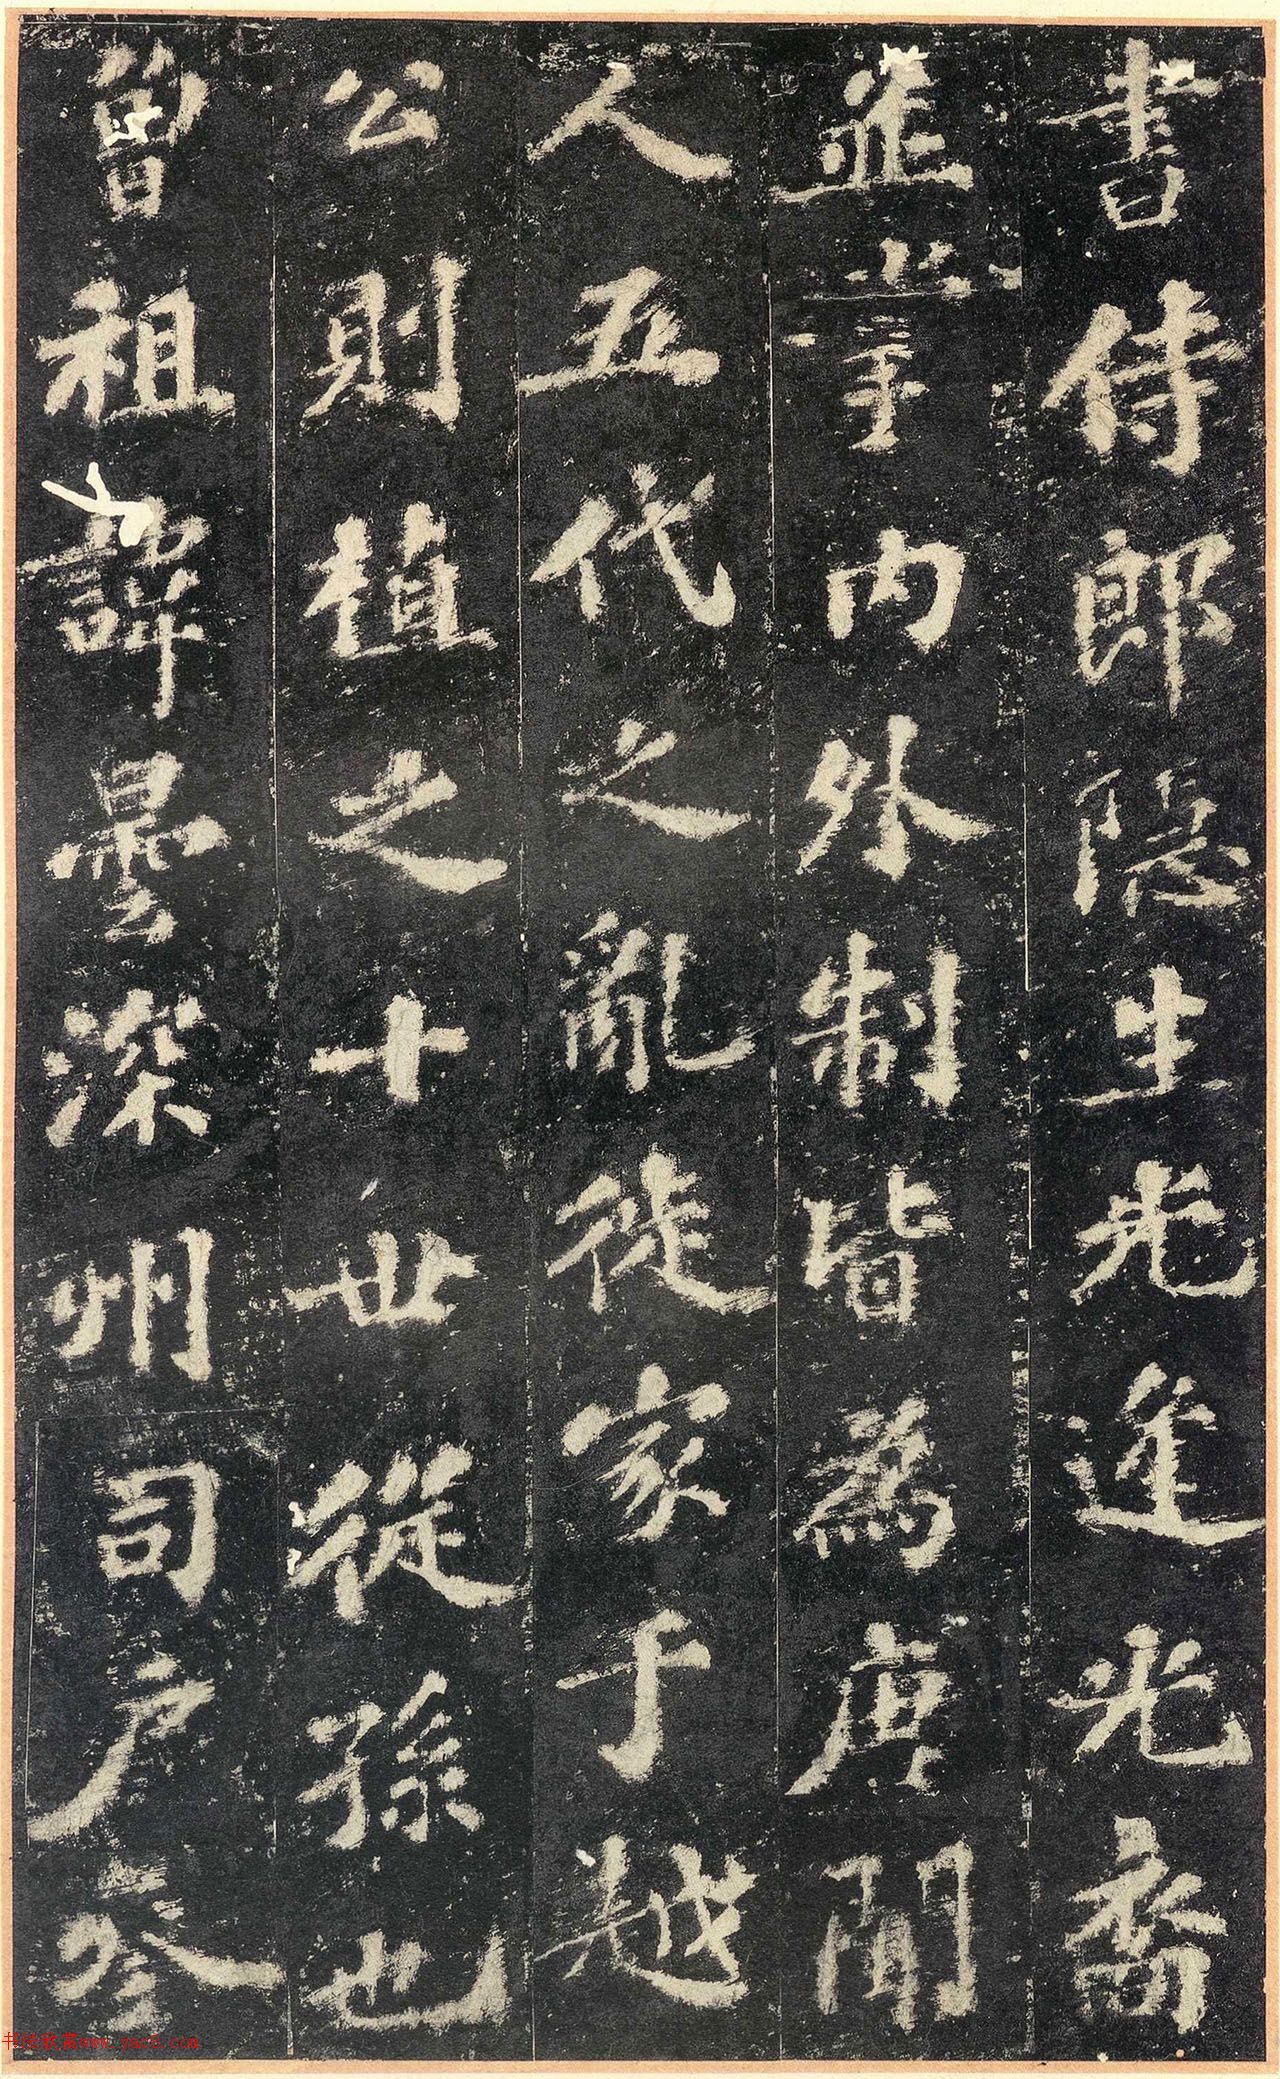 書侍郎隱生光逢光裔
並掌內外制皆為唐聞
人五代之亂徙家于越
公則植之十世從孫也
曾祖諱曇深州司戶參
书法欣赏www.yac8.com